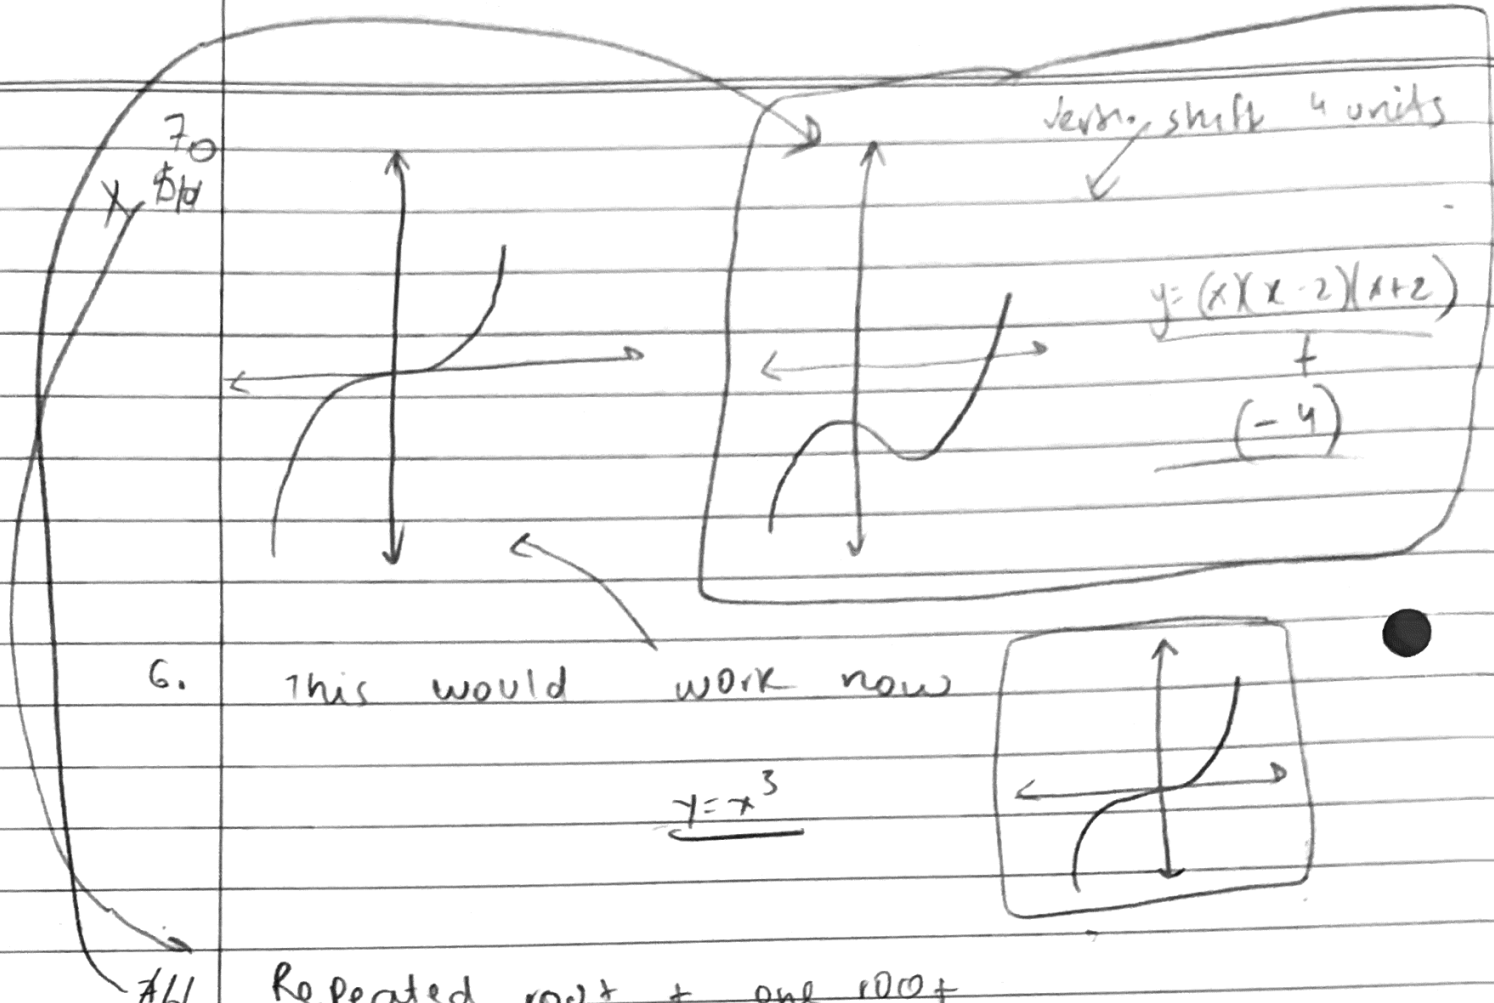 7.
vert. shift 4 units
y=(x)(x-2)(x+2)
+
(-4)
6. This would work now
y=x³
Repeated root + one root